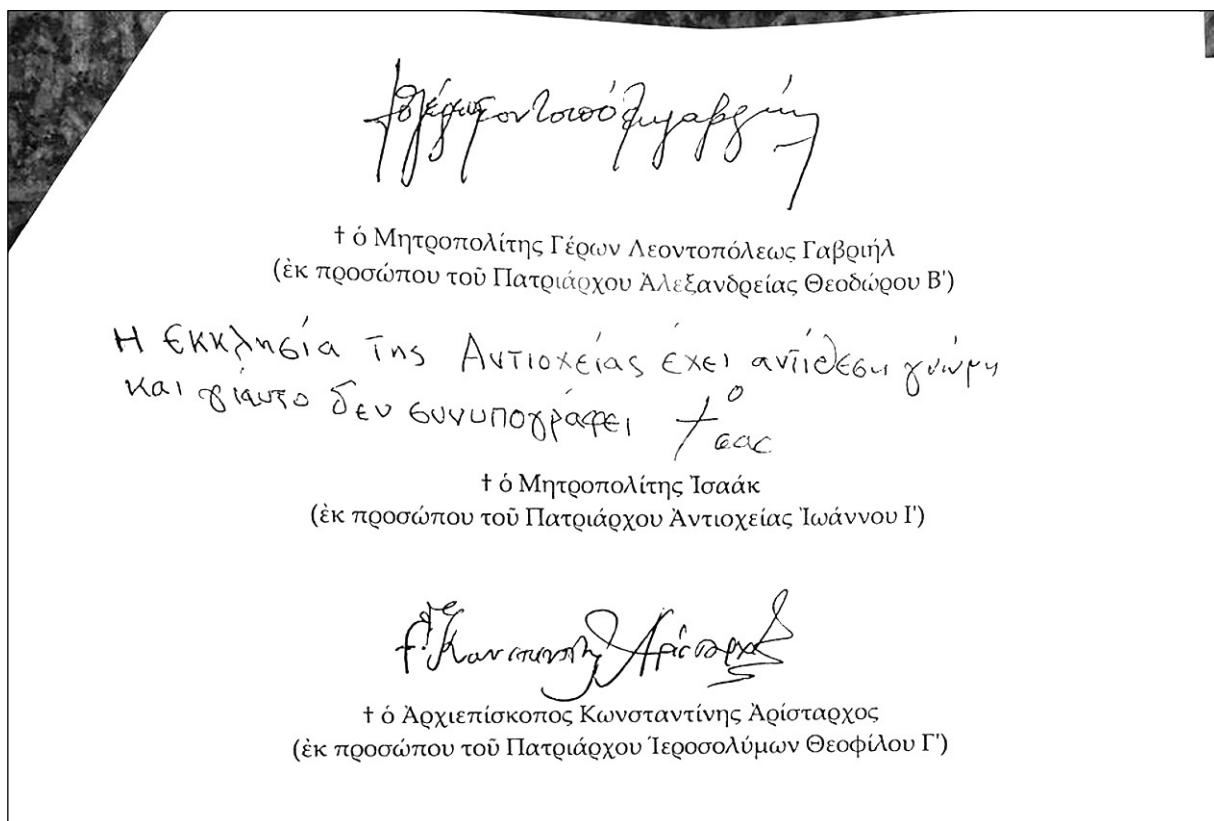 † ὁ Μητροπολίτης Γέρων Λεοντοπόλεως Γαβριήλ
(ἐκ προσώπου τοῦ Πατριάρχου Ἀλεξανδρείας Θεοδώρου Β')
Η Εκκλησία της Αντιοχείας έχει αντίθεση γνώμη
και γι'αυτο δεν συνυπογράφει † ο
† ὁ Μητροπολίτης Ἰσαάκ
(ἐκ προσώπου τοῦ Πατριάρχου Ἀντιοχείας Ἰωάννου Ι')
† ὁ Ἀρχιεπίσκοπος Κωνσταντίνης Ἀρίσταρχος
(ἐκ προσώπου τοῦ Πατριάρχου Ἱεροσολύμων Θεοφίλου Γ')